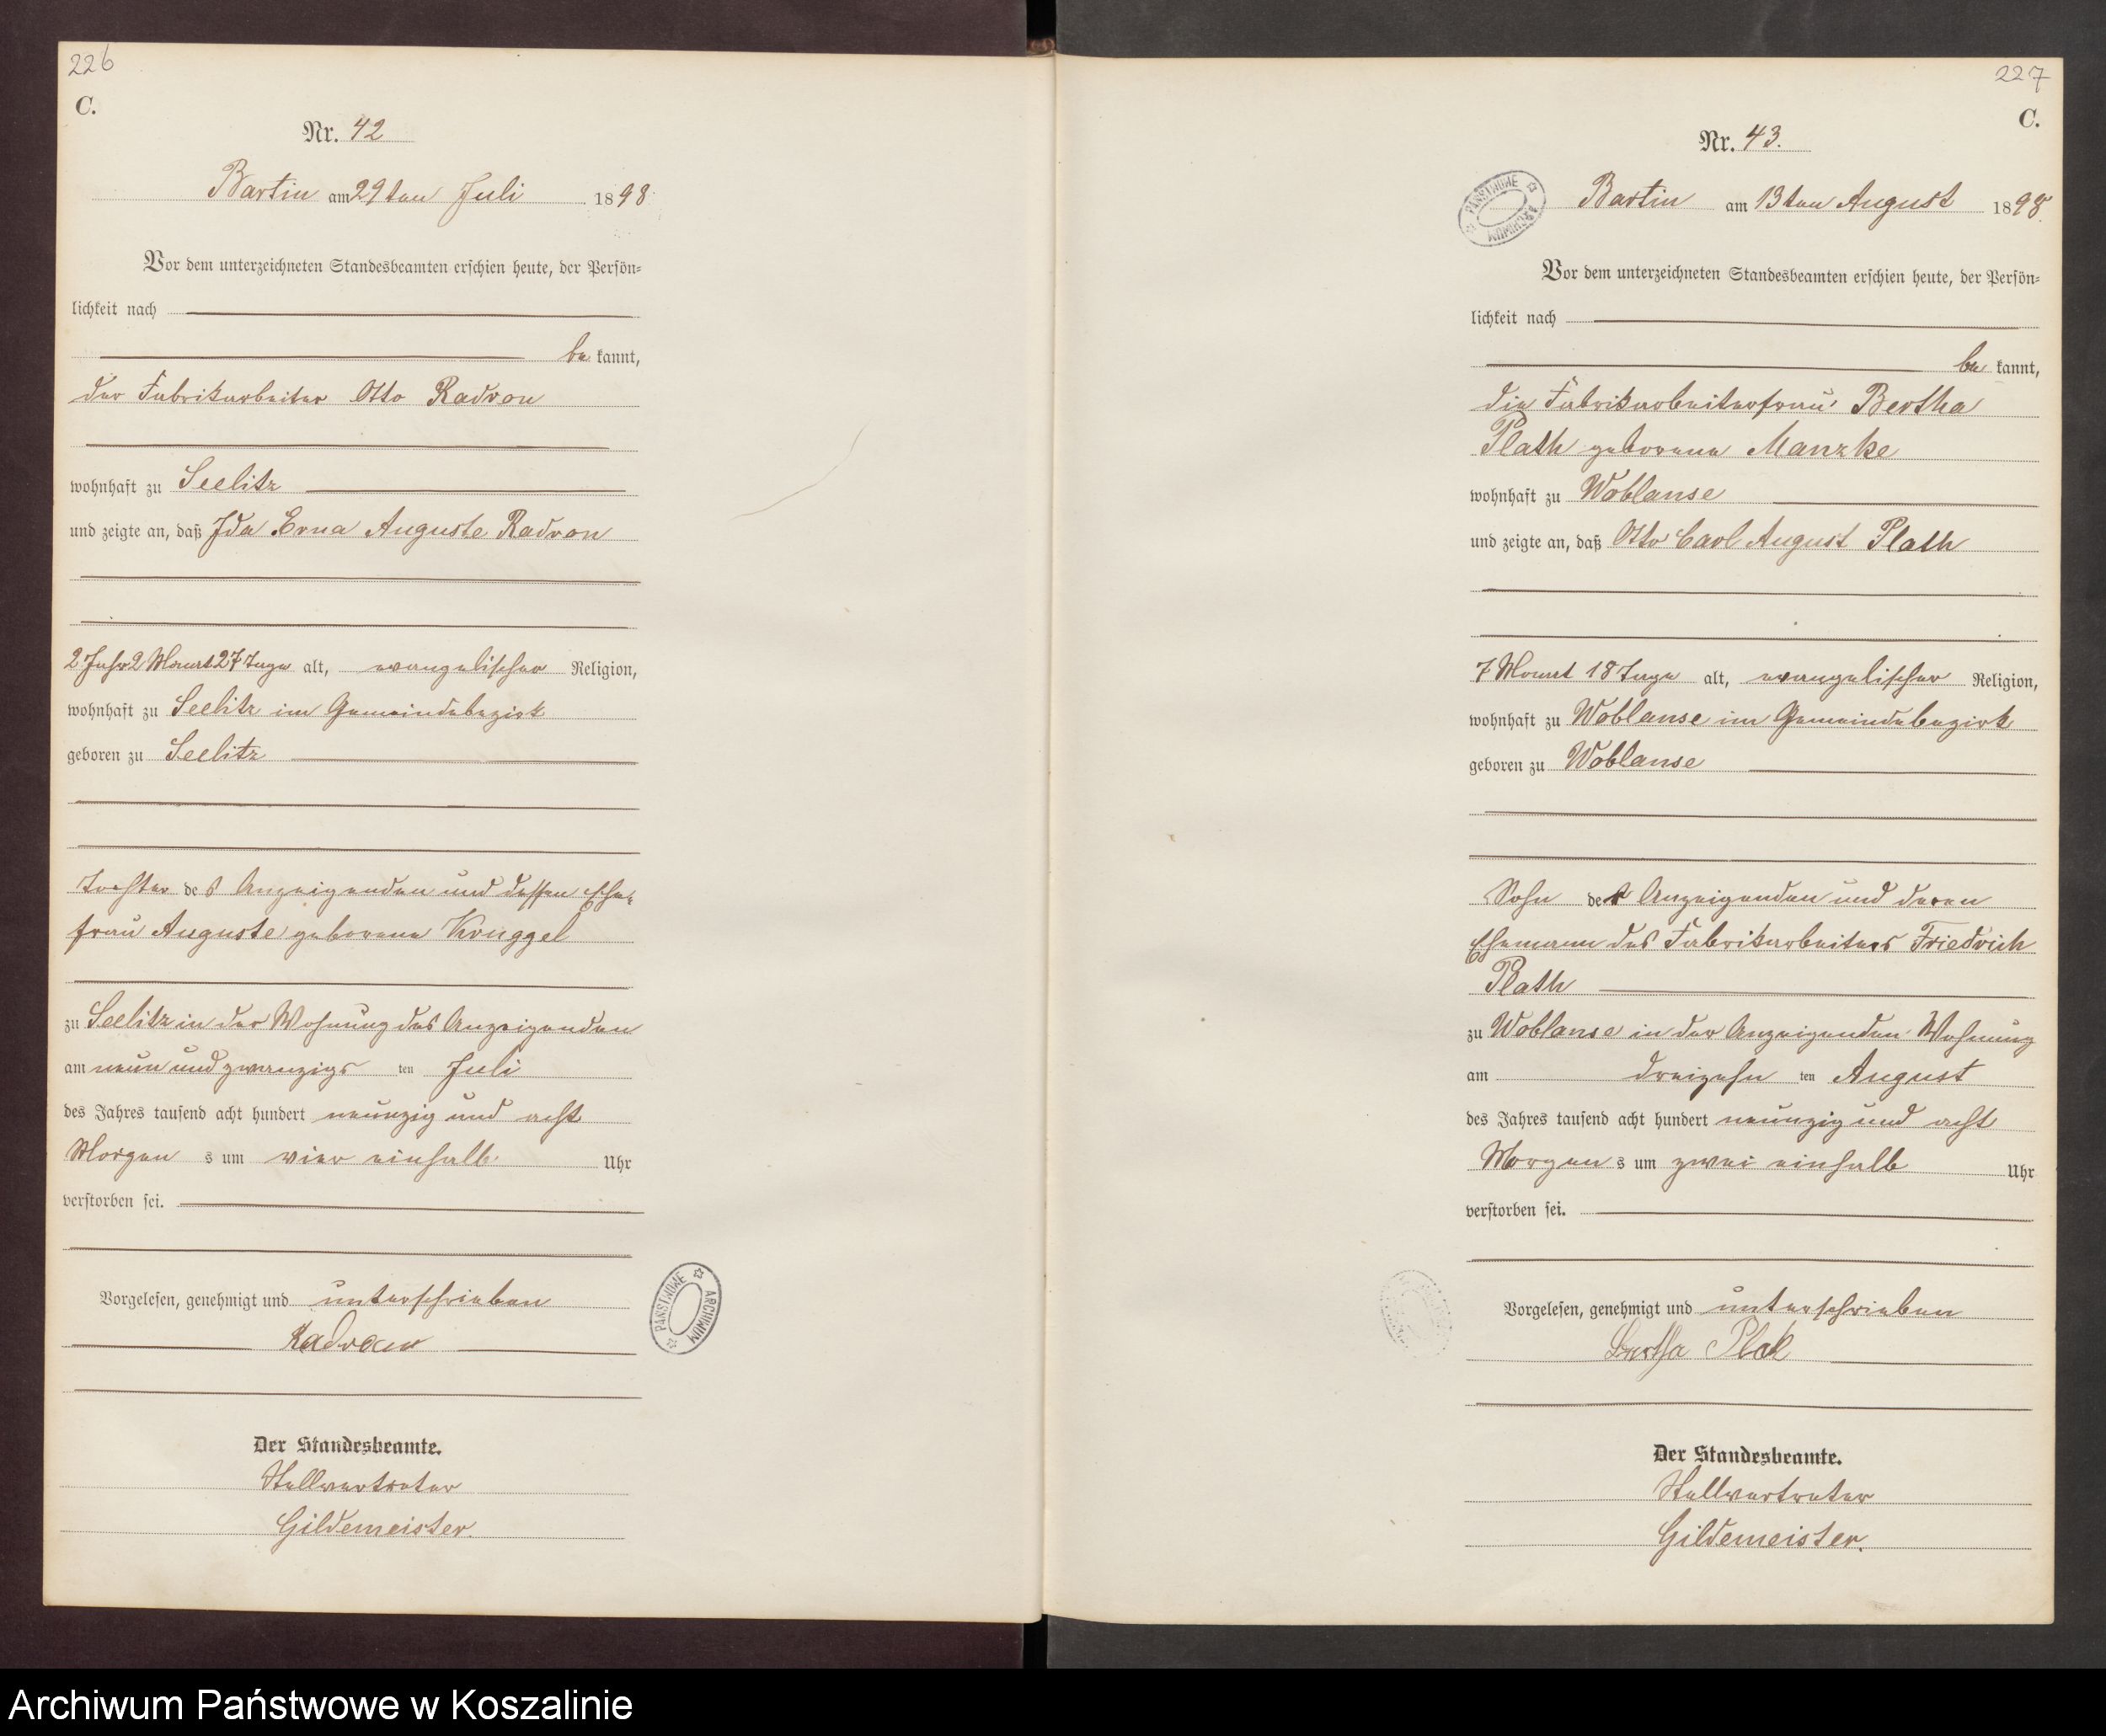 226
C.
Nr. 42
Bartin am 29ten Juli 1898
Vor dem unterzeichneten Standesbeamten erschien heute, der Persön=
lichkeit nach
be kannt,
der Fabrikarbeiter Otto Radron
wohnhaft zu Seelitz
und zeigte an, daß Ida Erna Auguste Radron
2 Jahr 2 Monat 27 Tage alt, evangelischer Religion,
wohnhaft zu Seelitz im Gemeindebezirk
geboren zu Seelitz
Tochter des Anzeigenden und dessen Ehe=
frau Auguste geborene Kruggel
zu Seelitz in der Wohnung des Anzeigenden
am neun und zwanzigs ten Juli
des Jahres tausend acht hundert neunzig und acht
Morgen s um vier einhalb Uhr
verstorben sei.
Vorgelesen, genehmigt und unterschrieben
Radron
ARCHIWUM PAŃSTWOWE
Der Standesbeamte.
Stellvertreter
Gildemeister.
227
C.
Nr. 43.
ARCHIWUM PAŃSTWOWE
Bartin am 13ten August 1898.
Vor dem unterzeichneten Standesbeamten erschien heute, der Persön=
lichkeit nach
be kannt,
die Fabrikarbeiterfrau Bertha
Plath geborene Manzke
wohnhaft zu Woblanse
und zeigte an, daß Otto Carl August Plath
7 Monat 18 Tage alt, evangelischer Religion,
wohnhaft zu Woblanse im Gemeindebezirk
geboren zu Woblanse
Sohn der Anzeigenden und deren
Ehemann des Fabrikarbeiters Friedrich
Plath
zu Woblanse in der Anzeigenden Wohnung
am dreizehn ten August
des Jahres tausend acht hundert neunzig und acht
Morgen s um zwei einhalb Uhr
verstorben sei.
Vorgelesen, genehmigt und unterschrieben
Bertha Plat
Der Standesbeamte.
Stellvertreter
Gildemeister.
Archiwum Państwowe w Koszalinie